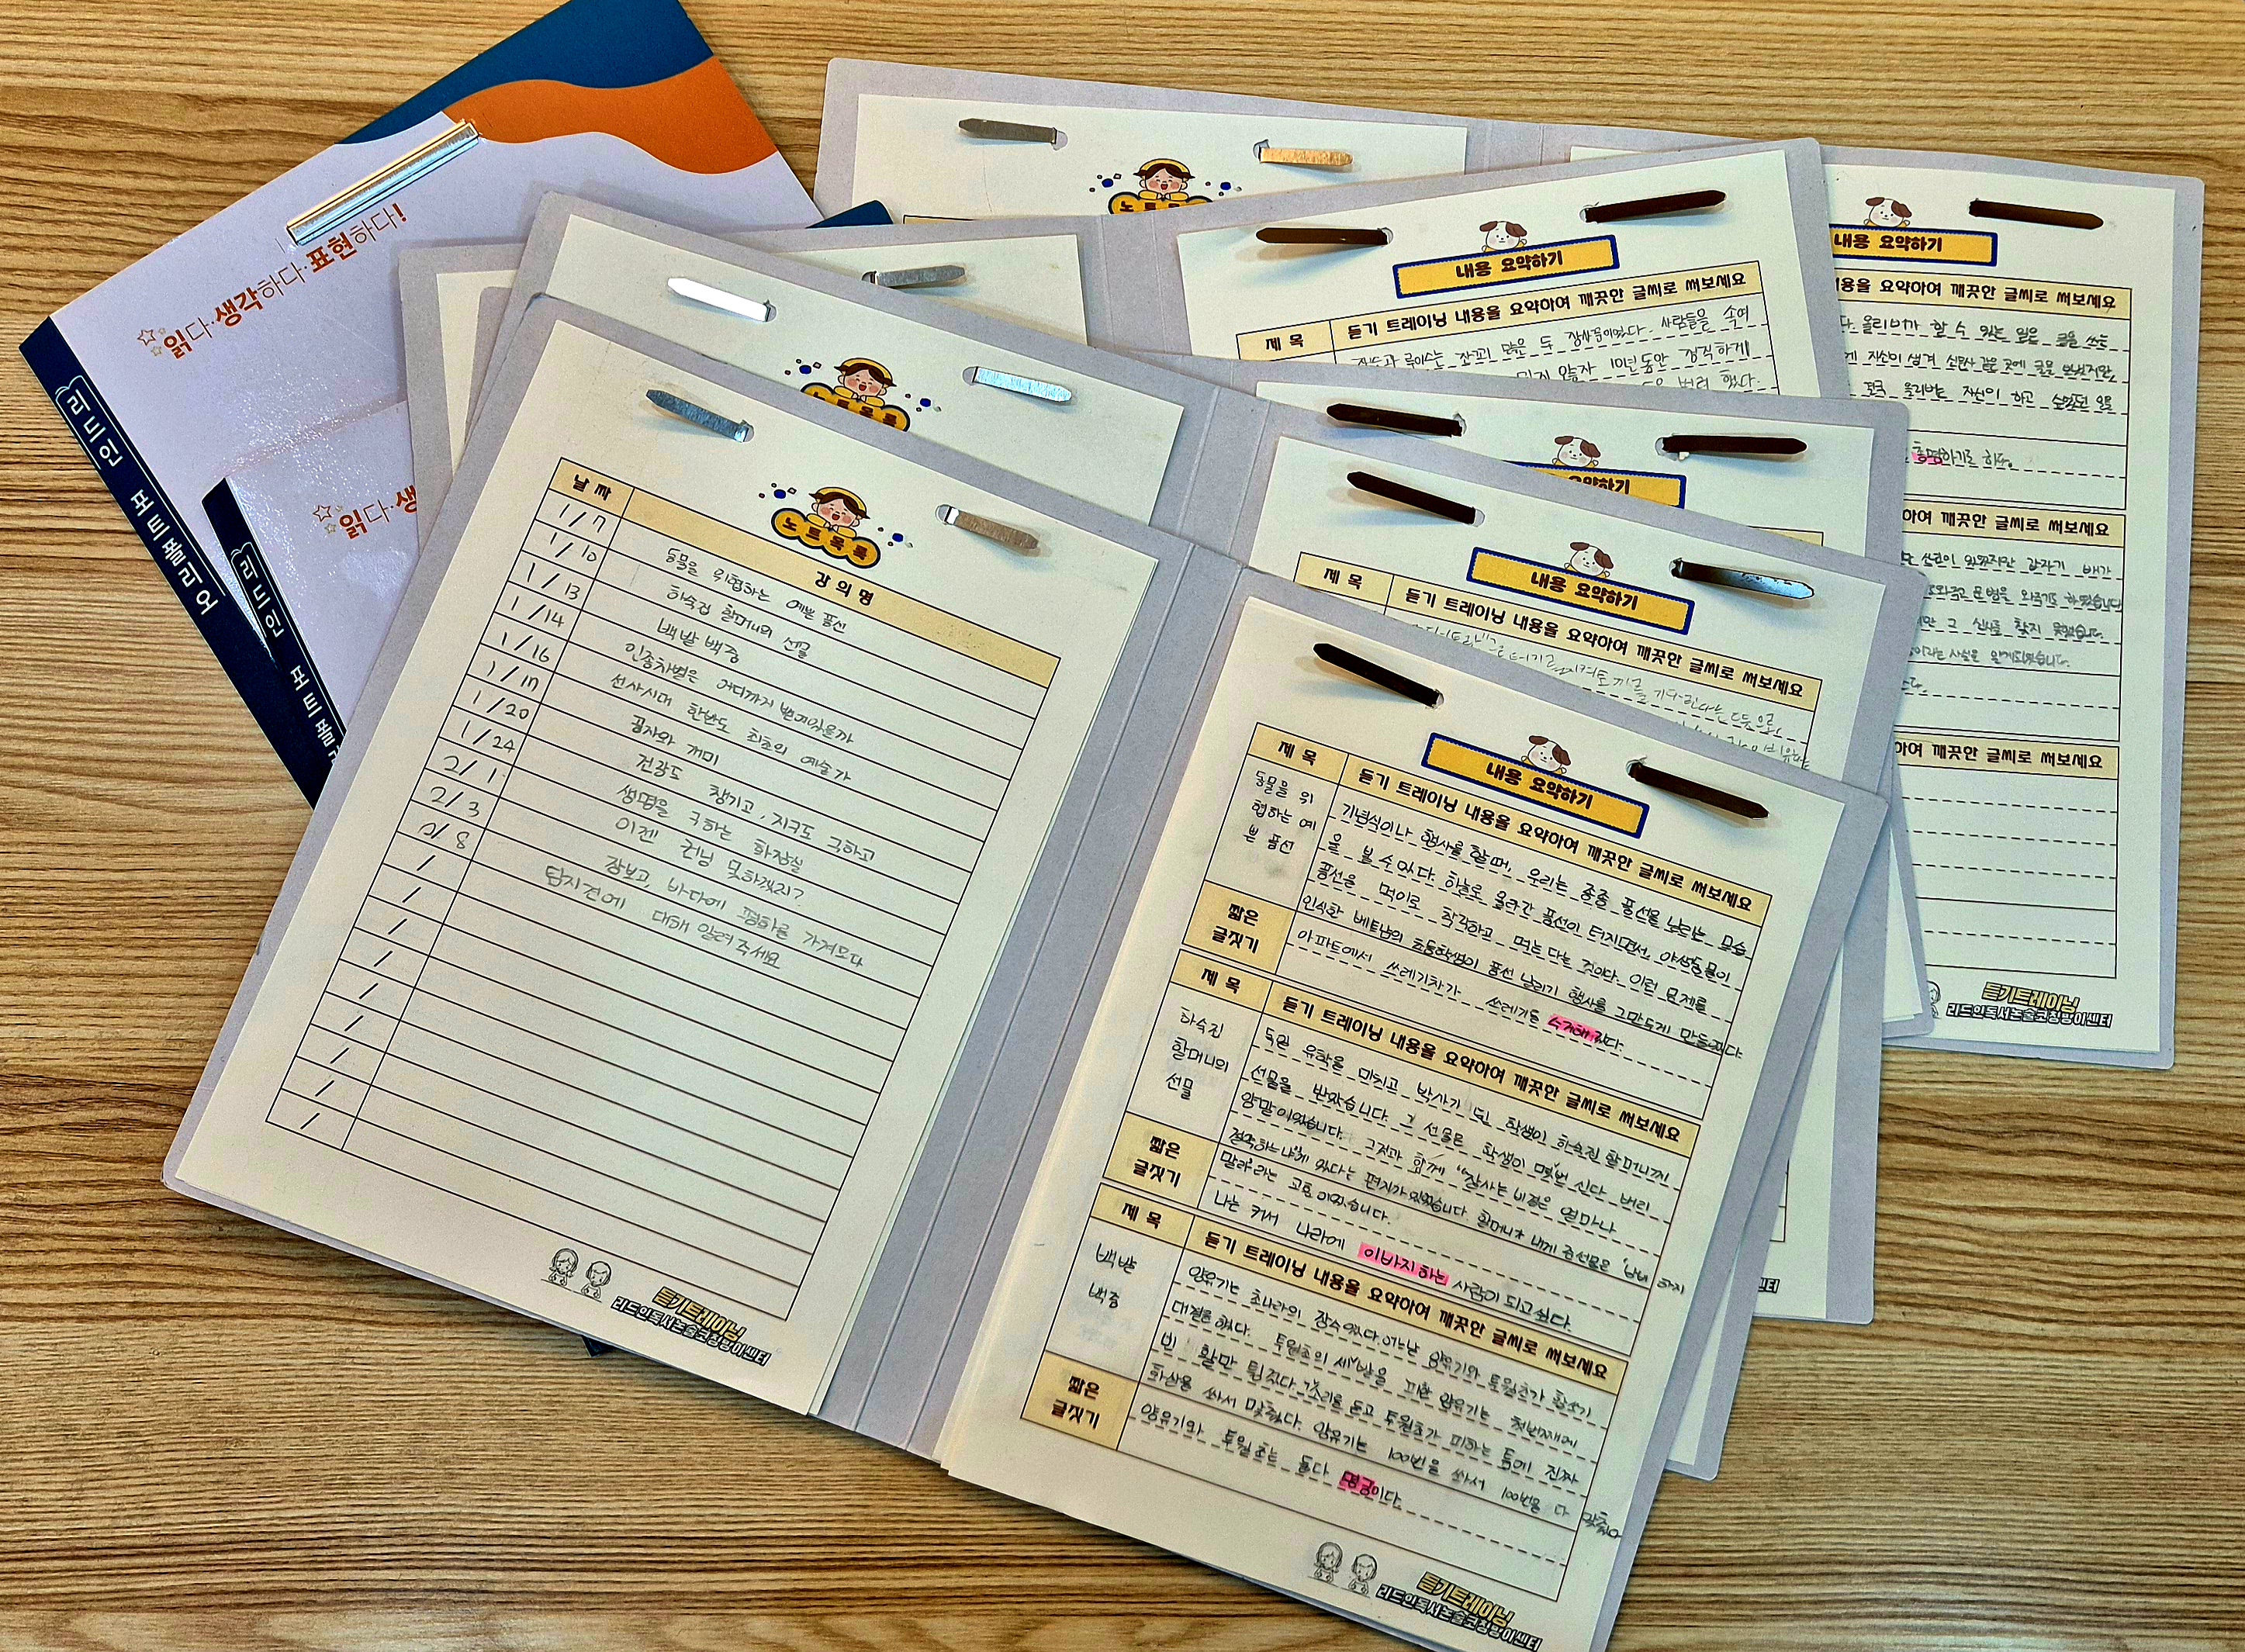 읽다·생각하다·표현하다!
리드인 포트폴리오
읽다·생
리드인 포트폴
노트목록
날짜
강의명
1/7 동물을 위협하는 예쁜 풍선
1/10 하숙집 할머니의 선물
1/13 백발 백중
1/14 인종차별은 어디까지 번져있을까
1/16 선사시대 한반도 최초의 예술가
1/17 공자와 개미
1/20 건강도 챙기고, 지구도 구하고
1/24 생명을 구하는 화장실
2/1 이젠 커닝 못하겠지?
2/3 장보고, 바다에 평화를 가져오다
2/8 탐지견에 대해 알려주세요
/
/
/
/
/
/
/
/
/
듣기트레이닝
리드인독서논술코칭맘이센터
내용 요약하기
제목
듣기 트레이닝 내용을 요약하여 깨끗한 글씨로 써보세요
동물을 위
협하는 예
쁜 풍선
기념식이나 행사를 할 때, 우리는 종종 풍선을 날리는 모습
을 볼 수 있다. 하늘로 올라간 풍선이 터지면서, 야생동물이
풍선을 먹이로 착각하고 먹는다는 것이다. 이런 문제를
인식한 베트남의 초등학생이 풍선 날리기 행사를 그만두게 만들었다.
짧은
글짓기
아파트에서 쓰레기차가 쓰레기를 수거해 갔다.
제목
듣기 트레이닝 내용을 요약하여 깨끗한 글씨로 써보세요
하숙집
할머니의
선물
독일 유학을 마치고 박사가 된 학생이 하숙집 할머니께
선물을 받았습니다. 그 선물은 학생이 몇번 신다 버린
양말이었습니다. 그것과 함께 "잘사는 비결은 얼마나
절약하는냐에 있다는 편지가 있었습니다. 할머니가 내게 준선물은 '낭비 하지
말라'라는 교훈이었습니다.
짧은
글짓기
나는 커서 나라에 이바지하는 사람이 되고싶다.
제목
듣기 트레이닝 내용을 요약하여 깨끗한 글씨로 써보세요
백발
백중
양유기는 초나라의 장수였다. 어느날 양유기와 투월초가 활쏘기
대결을 했다. 투월초의 세발을 피한 양유기는 첫번째에
빈 활만 튕겼다. 그소리를 듣고 투월초가 피하는 틈에 진짜
화살을 쏴서 맞췄다. 양유기는 100번을 쏴서 100번을 다 맞췄다
짧은
글짓기
양유기와 투월초는 둘다 명궁이다.
듣기트레이닝
리드인독서논술코칭맘이센터
내용 요약하기
제목
듣기 트레이닝 내용을 요약하여 깨끗한 글씨로 써보세요
내용 요약하기
제목
듣기 트레이닝 내용을 요약하여 깨끗한 글씨로 써보세요
루이스는 잔꾀 많은 두 장사꾼이었다. 사람들을 속여
믿지 않자 1년동안 정직하게
내용 요약하기
내용을 요약하여 깨끗한 글씨로 써보세요
올리버가 할 수 있는 일은 글을 쓰는
올리버는 자신이 하고
총명하기로
하여 깨끗한 글씨로 써보세요
갑자기 배가
그 신사를 찾지 못했습니다.
이라는 사실을 알게되었습니다.
하여 깨끗한 글씨로 써보세요
듣기트레이닝
리드인독서논술코칭맘이센터